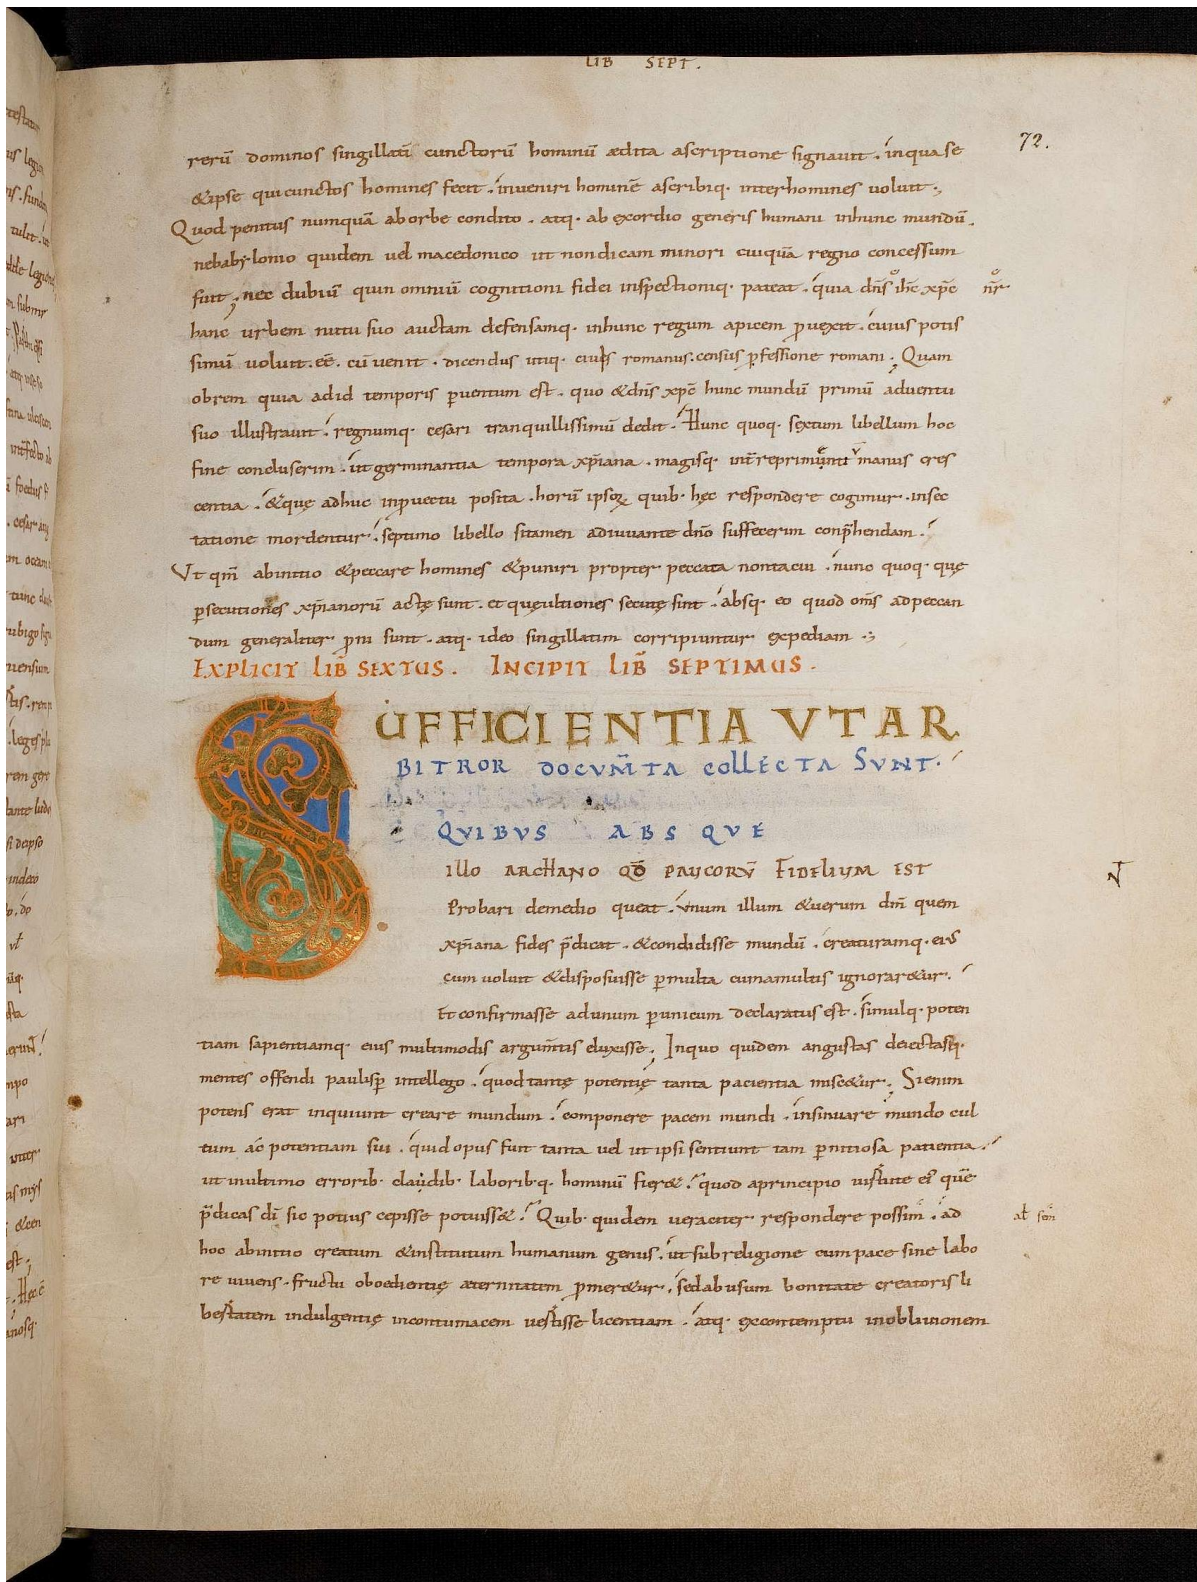 LIB SEPT.
72.
rerū dominos singillatī cunctorū hominū ædita ascriptione signauit. in qua se
& ipse qui cunctos homines fecit. inueniri hominē ascribiq. inter homines uoluit.,
Quod penitus numquā ab orbe condito. atq. ab exordio generis humani in hunc mundū.
ne babylonio quidem uel macedonico ut non dicam minori cuiquā regno concessum
fuit; nec dubiū quin omniū cognitioni fidei inspectioniq. pateat. quia dn̄s ihc̄ xp̄c nr̄
hanc urbem nutu suo auctam defensamq. in hunc regum apicem puexit. cuius potis
simū uoluit. eē. cū uenit. dicendus utiq. ciuis romanus. census pfessione romani; Quam
obrem quia ad id temporis puentum est. quo & dn̄s xp̄c hunc mundū primū aduentu
suo illustrauit. regnumq. cesari tranquillissimū dedit. Hunc quoq. sextum libellum hoc
fine concluserim. ut germinantia tempora xp̄iana. magisq. int̄ reprimenti manus cres
centia. & quę adhuc in puectu posita. horū ipsoꝝ quib. hęc respondere cogimur. insec
tatione mordentur. septimo libello si tamen adiuuante dn̄o suffecerim conp̄hendam.
Ut qm̄ ab initio & peccare homines & puniri propter peccata non tacui. nunc quoq. quę
psecutiones xp̄ianorū actę sunt. et quę ultiones secutę sint. absq. eo quod om̄s ad peccan
dum generaliter pni sunt. atq. ideo singillatim corripiuntur expediam.;
EXPLICIT LIB̄ SEXTUS. INCIPIT LIB̄ SEPTIMUS.
SUFFICIENTIA UT AR
BITROR DOCUM̄TA COLLECTA SUNT.
QUIBUS ABSQUE
ILLO ARCHANO QD̄ PAUCORŪ FIDELIUM EST
Probari de medio queat. unum illum & uerum dm̄ quem
xp̄iana fides p̄dicat. & condidisse mundū. creaturamq. eius
cum uoluit & disposuisse p multa cum a multis ignorar&ur.
Et confirmasse ad unum p unicum declaratus est. simulq. poten
tiam sapientiamq. eius multimodis argum̄tis eluxisse; In quo quidem angustas deiectasq.
mentes offendi paulisp intellego. quod tantę potentię tanta pacientia misc&ur; Si enim
potens erat inquiunt creare mundum. componere pacem mundi. insinuare mundo cul
tum ac potentiam sui. quid opus fuit tanta uel ut ipsi sentiunt tam pnitiosa patientia.
ut in ultimo errorib. cladib. laborib.q. hominū fier&. quod a principio uirtute ei' quē
p̄dicas dī sic potius cepisse potuiss&. Quib. quidem ueraciter respondere possim. ad al̄
hoc ab initio creatum & institutum humanum genus. ut sub religione cum pace sine labo
re uiuens. fructu oboedientię æternitatem pmer&ur. sed abusum bonitate creatoris li
bertatem indulgentię in contumacem uertisse licentiam. atq. ex contemptu in obliuionem